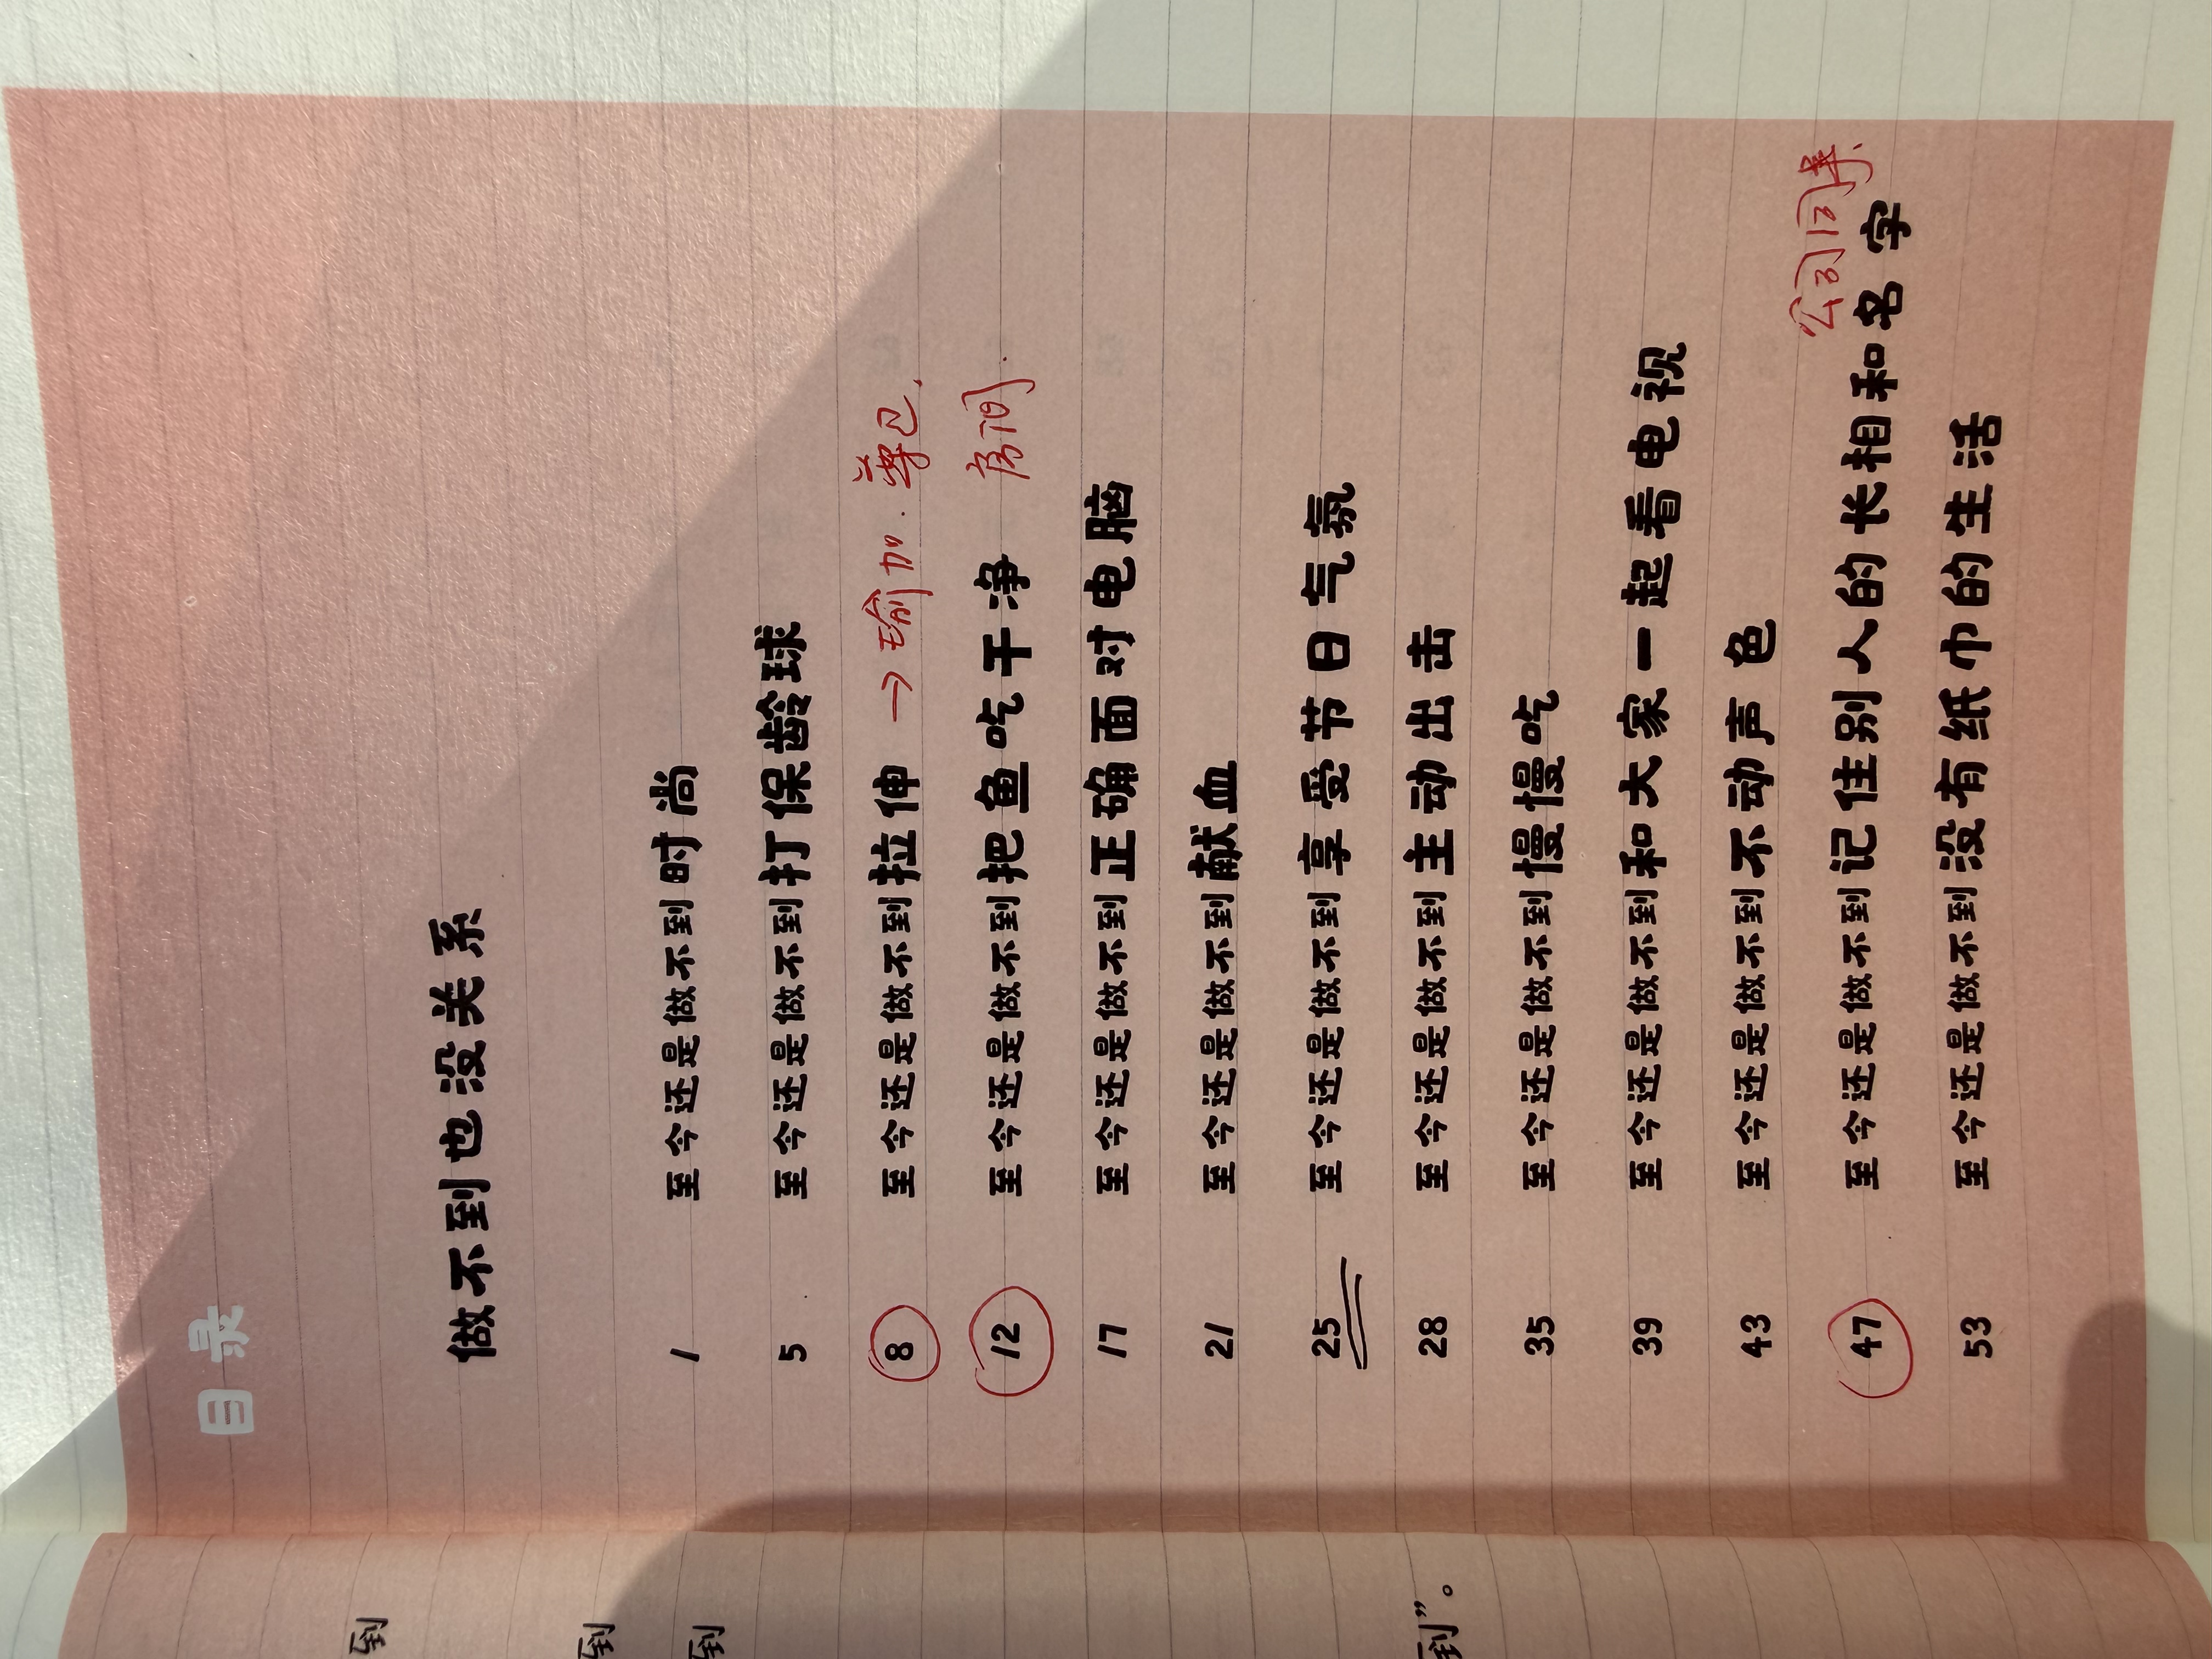 目录
做不到也没关系
1 至今还是做不到时尚
5 至今还是做不到打保龄球
8 至今还是做不到拉伸 →瑜加.
12 至今还是做不到把鱼吃干净 房间.
17 至今还是做不到正确面对电脑
21 至今还是做不到献血
25 至今还是做不到享受节日气氛
28 至今还是做不到主动出击
35 至今还是做不到慢慢吃
39 至今还是做不到和大家一起看电视
43 至今还是做不到不动声色
公司同事.
47 至今还是做不到记住别人的长相和名字
53 至今还是做不到没有纸巾的生活
到
到
到
到”。